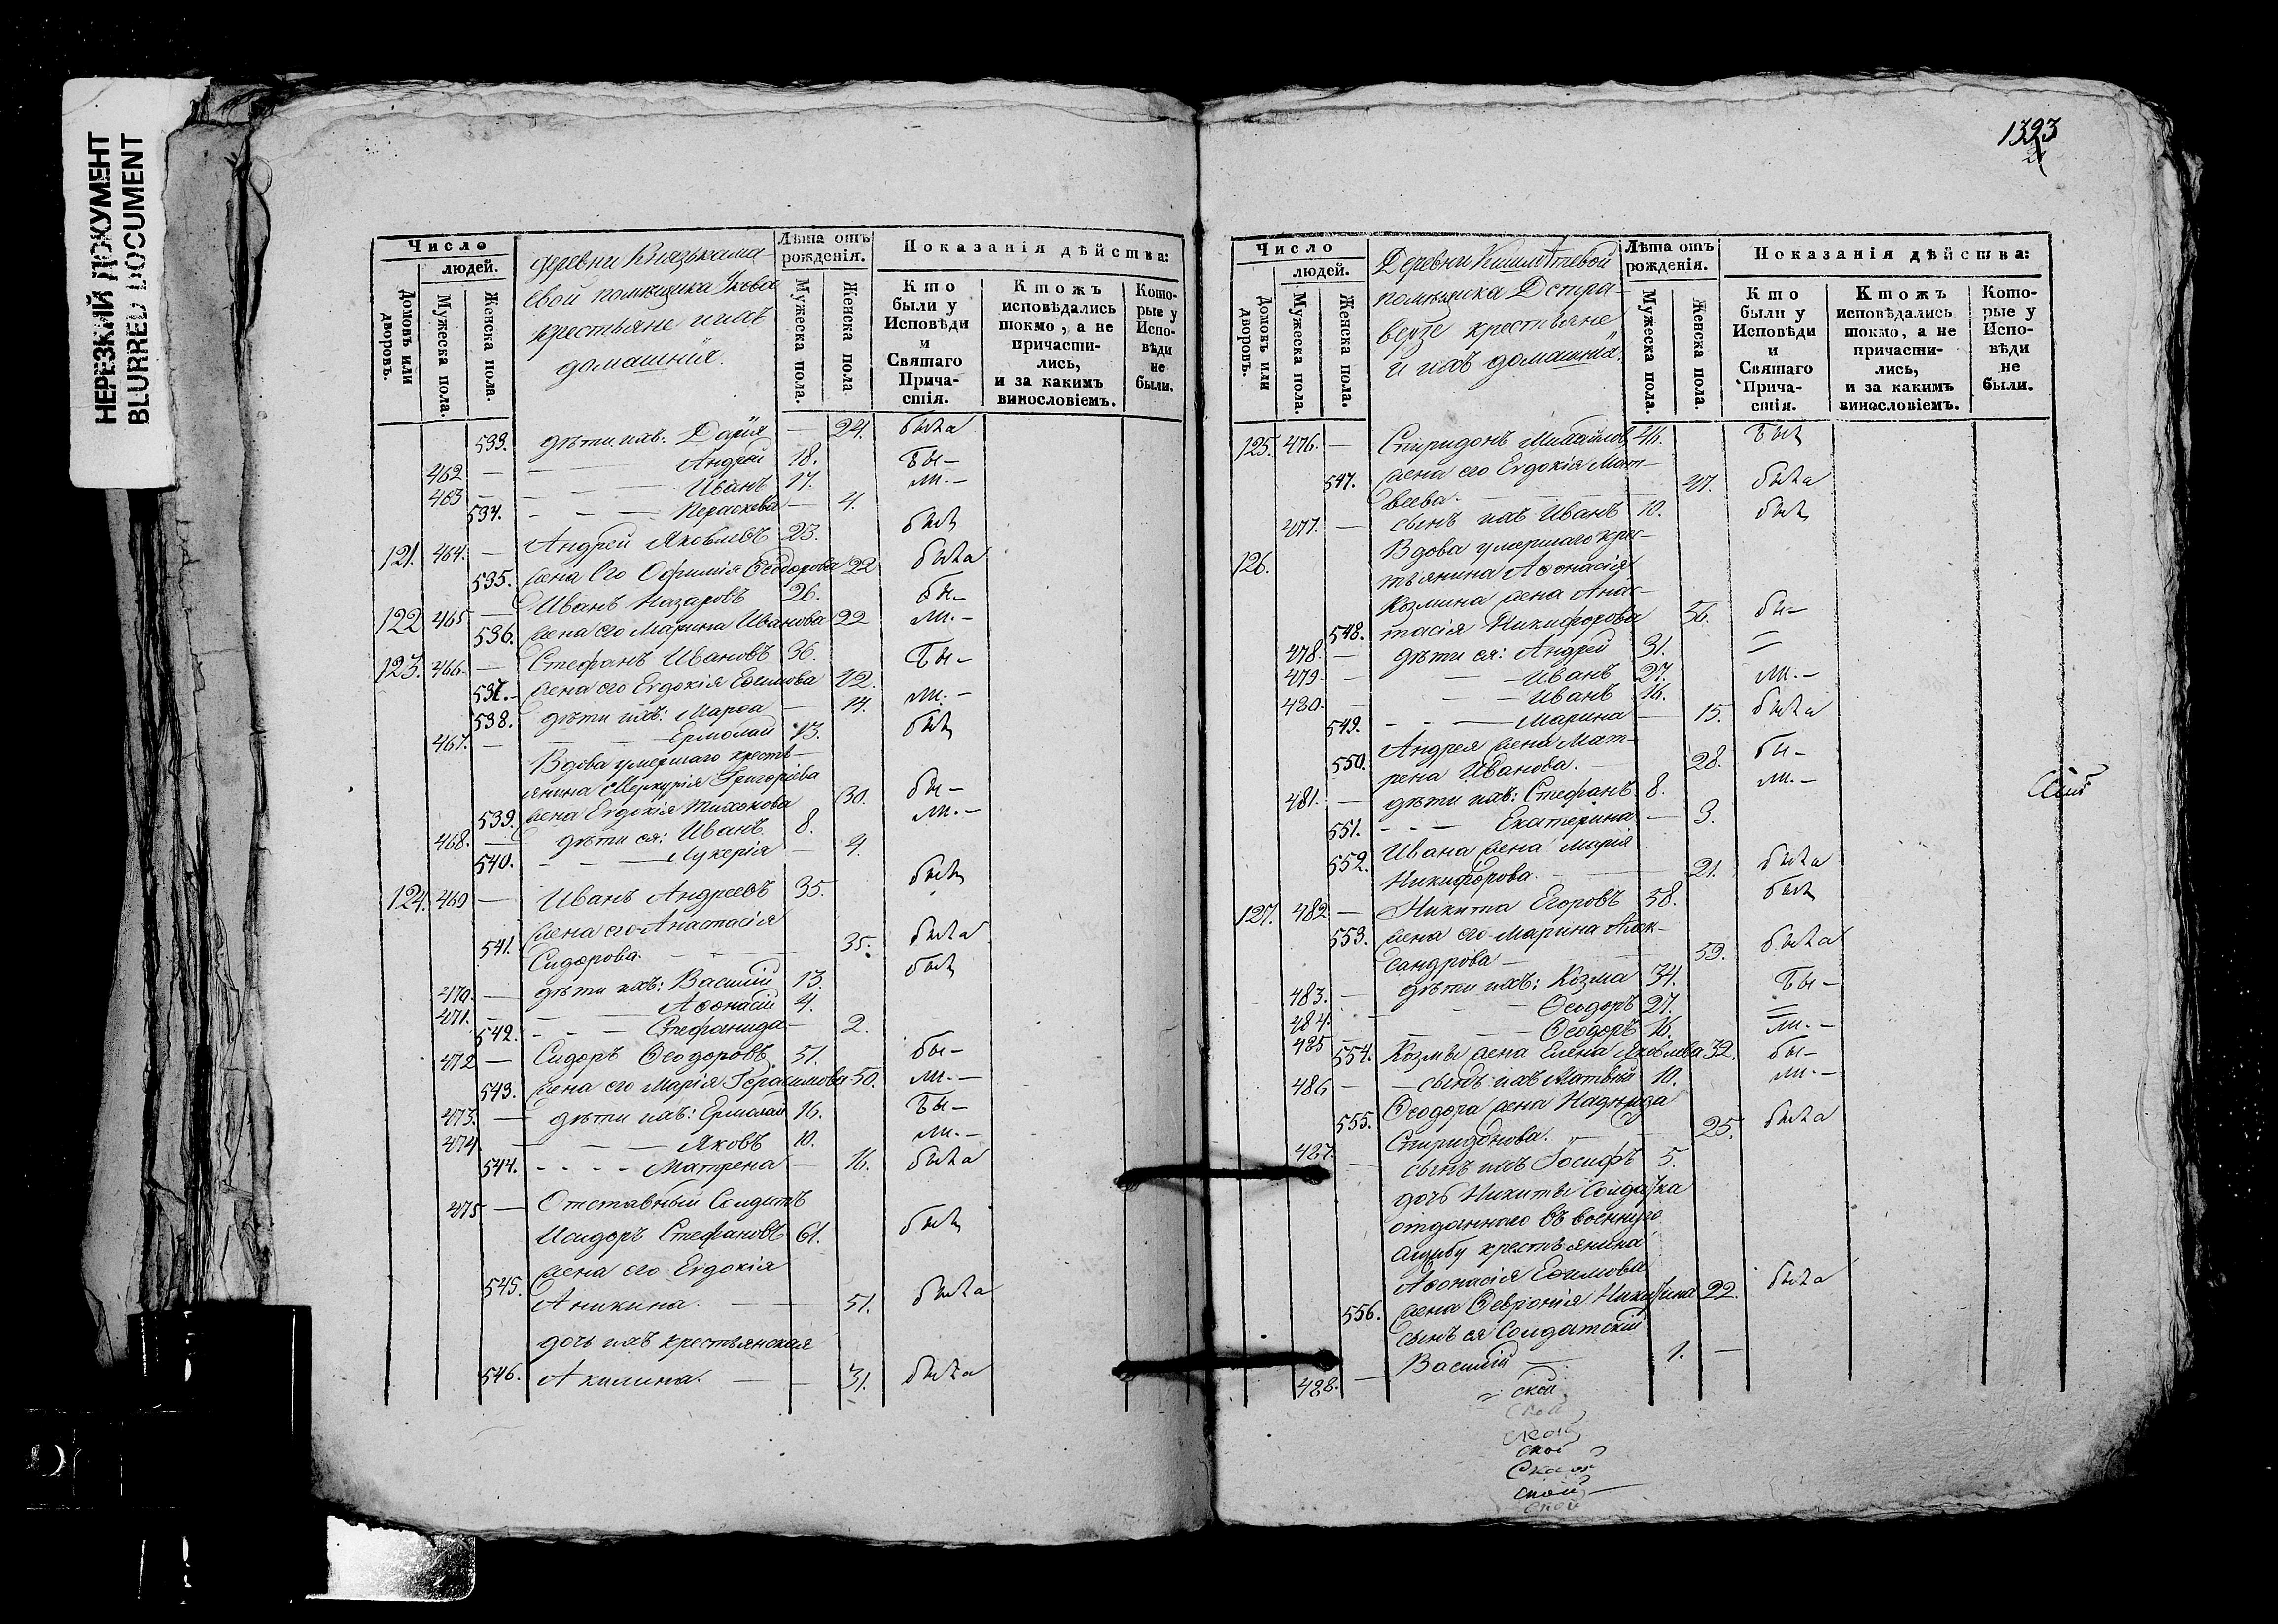 НЕРЕЗКИЙ ДОКУМЕНТ
BLURRED DOCUMENT
Число
людей.
Домовъ или дворовъ.
Мужеска пола.
Женска пола.
деревни Князькама
евой помещика
крестьяне ихъ
домашнія.
Лѣта отъ рожденія.
Мужеска пола.
Женска пола
Показанія дѣйства:
Кто были у Исповѣди и Святаго Причастія.
Ктожъ исповѣдались токмо, а не причастились, и за какимъ винословіемъ.
Которые у Исповѣди не были.
533. дѣти ихъ: Дарія — 24. была
462 — — Андрей 18. бы—
463 — — Иванъ 17. ли.—
534. — — Параскева — 4.
121. 464. — Андрей Яковлевъ 23. былъ
535. жена его Офимія Ѳеодорова 22 была
122 465 — Иванъ Назаровъ 26. бы—
536. жена его Марина Иванова 22 ли.—
123. 466. — Стефанъ Ивановъ 36. бы—
537.— жена его Евдокія Ефимова 42. ли.—
538. дѣти ихъ: Марѳа — 14.
467. — — Ермолай 13. былъ
Вдова умершаго кресть—
янина Меркурія Григоріева
539. жена Евдокія Тихонова 30. бы—
468. — дѣти ея: Иванъ 8. ли.—
540. — — Лукерія — 4.
124. 469 — Иванъ Андреевъ 35. былъ
жена его Анастасія
541. Сидорова. — — 35. была
470. — дѣти ихъ: Василій 13. былъ
471. — — Аѳонасій 4.
542. — — Стефанида — 2.
472 — Сидоръ Ѳеодоровъ 51. бы—
543. жена его Марія Герасимова 50. ли.—
473. — дѣти ихъ: Ермолай 16. бы—
474 — — Яковъ 10. ли.—
544. — — Матрена — 16. была
475 — Отставный Солдатъ
Исидоръ Стефановъ 61. былъ
жена его Евдокія
545. Аникина. — — 51. была
дочь ихъ крестьянская
546. Акилина. — — 31. была
1323
Число
людей.
Домовъ или дворовъ.
Мужеска пола.
Женска пола.
Деревни
помещика
крестьяне
и ихъ домашнія.
Лѣта отъ рожденія.
Мужеска пола.
Женска пола.
Показанія дѣйства:
Кто были у Исповѣди и Святаго Причастія.
Ктожъ исповѣдались токмо, а не причастились, и за какимъ винословіемъ.
Которые у Исповѣди не были.
125. 476. — Спиридонъ Михайлов 46. былъ
жена его Евдокія Мат—
547. веева. — 47. была
477. — сынъ ихъ Иванъ 10. былъ
126. Вдова умершаго крес—
тьянина Аѳонасія
Козмина жена Анас—
548. тасія Никифорова 56. бы—
478. — дѣти ея: Андрей 31. =
479. — — Иванъ 27. ли.—
480. — — Иванъ 16.
549. — — Марина — 15. была
Андрея жена Мат—
550. рена Иванова. — 28. бы—
481. — дѣти ихъ: Стефанъ 8. ли.—
551. — — Екатерина — 3.
Ивана жена Марія
552. Никифорова. — 21. была
127. 482 — Никита Егоровъ 58. былъ
жена его Марина Алек—
553. сандрова — 59. была
483. — дѣти ихъ: Козма 34. бы—
484. — — Ѳеодоръ 27. =
485 — — Ѳеодоръ 16. ли.—
554. Козмы жена Елена Яковлева 32. бы—
486 — — сынъ ихъ Матвѣй 10. ли.—
Ѳеодора жена Надежда
555. Спиридонова. — 25. была
487. — сынъ ихъ Іосифъ 5.
дочь Никиты Солдатка
отданнаго въ военную
службу крестьянина
Аѳонасія Ефимова
556. жена Ѳевронія Никитина 22. была
сынъ ея Солдатскій
488. — Василій — 1. —
ской
Ской
ской
ской
ской
ской